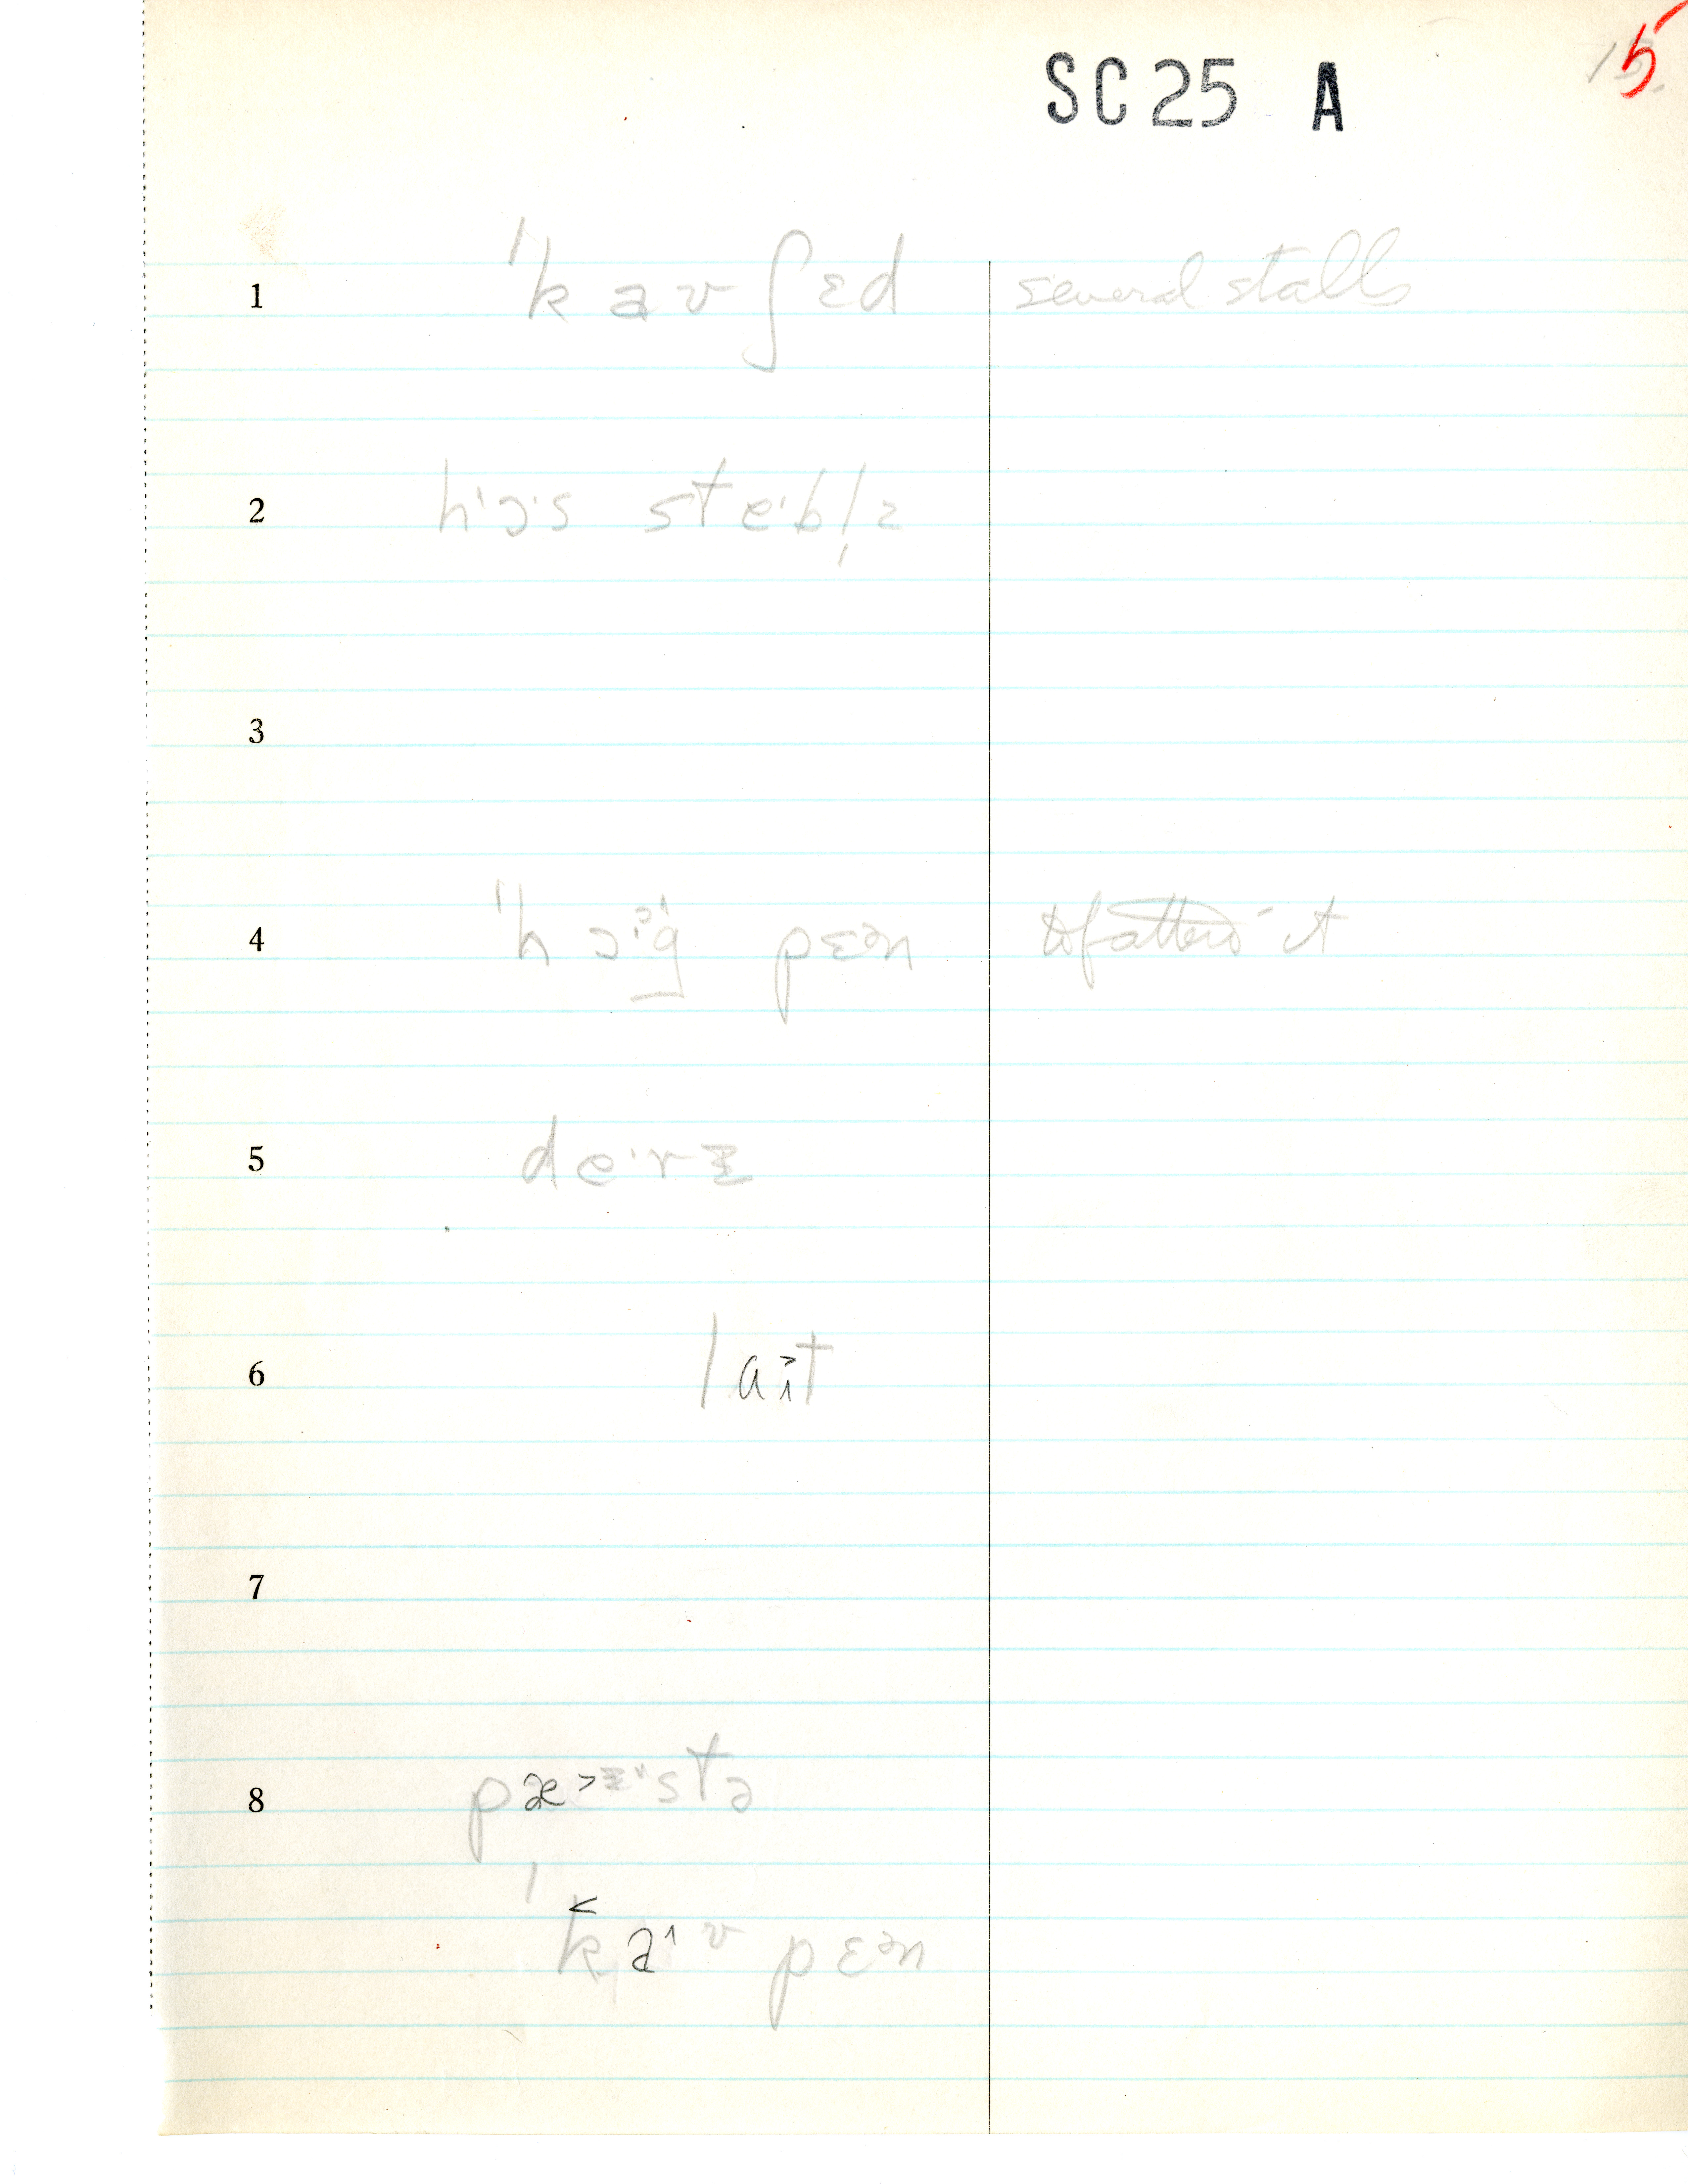 SC 25 A
15
1 ˈkaʊʃɛd several stalls
2 hɔˑs steˑbl̩z
3
4 ˈhɔˀg pɛən to fatten it
5 deˑrɪ
6 laɪt
7
8 pæˑstə
ˈkaʊ pɛən